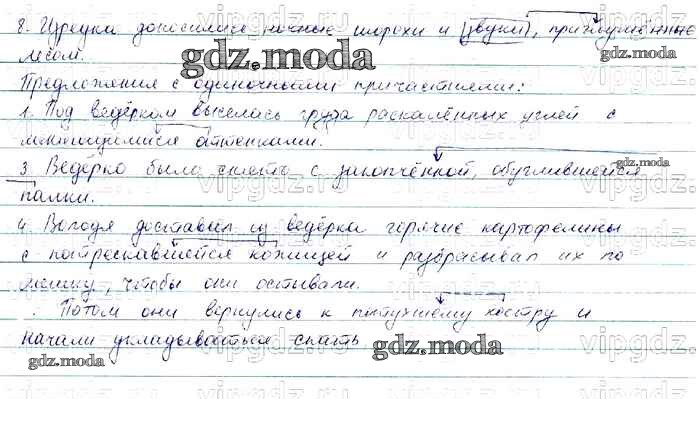 8. Изредка доносились ночные шорохи и (звуки), приглушенные
лесом.
Предложения с одиночными причастиями:
1. Под ведёрком высилась груда раскалённых углей с
меняющимися оттенками.
3 Ведёрко было снято с закопчённой, обуглившейся
палки.
4. Володя доставал из ведёрка горячие картофелины
с потрескавшейся кожицей и разбрасывал их по
мешку, чтобы они остывали.
. Потом они вернулись к потухшему костру и
начали укладываться спать
gdz.moda
gdz.moda
gdz.moda
gdz.moda
vipgdz.ru